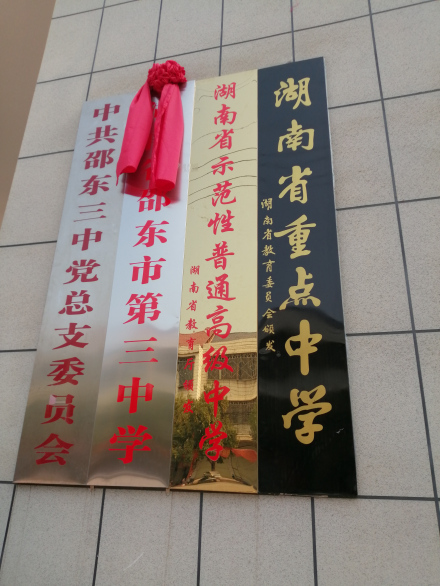 中共邵东三中党总支委员会
邵东市第三中学
湖南省示范性普通高级中学
湖南省教育厅颁发
湖南省重点中学
湖南省教育委员会颁发